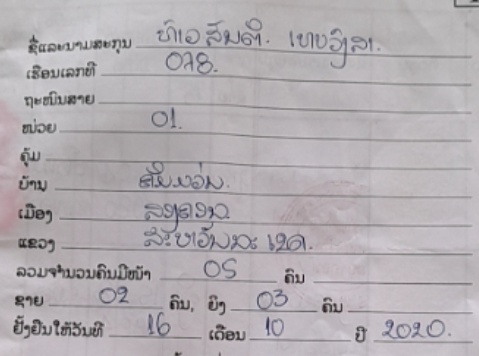 ຊື່ແລະນາມສະກຸນ ທ້າວ ສົມຕິ. ເທບວົງສາ.
ເຮືອນເລກທີ 078.
ຖະໜົນສາຍ
ໜ່ວຍ 01.
ຄຸ້ມ
ບ້ານ
ເມືອງ
ແຂວງ ສະຫວັນນະ ເຂດ.
ລວມຈຳນວນຄົນມີໜ້າ 05 ຄົນ
ຊາຍ 02 ຄົນ, ຍິງ 03 ຄົນ
ຢັ້ງຢືນໃຫ້ວັນທີ 16 ເດືອນ 10 ປີ 2020.